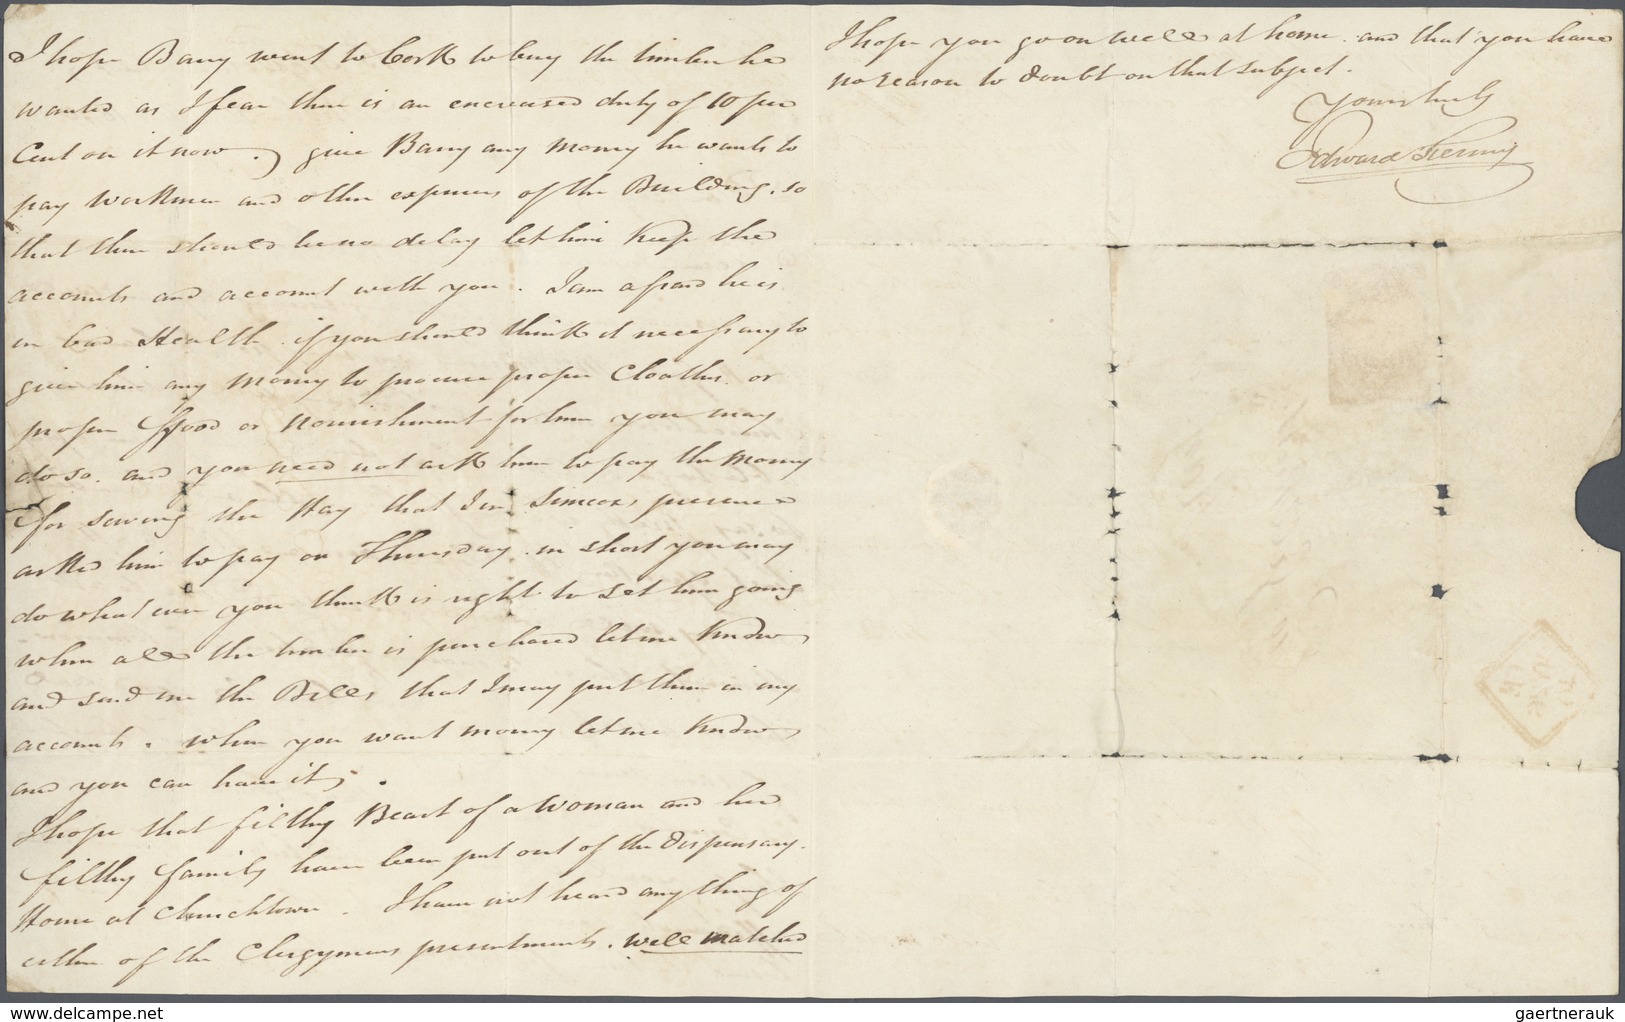 I hope Barry went to Cork to buy the timber he
wanted as I fear there is an encreased duty of 10 per
Cent on it now. give Barry any money he wants to
pay workmen and other expences of the Building, so
that there should be no delay let him keep the
accounts and account with you. I am afraid he is
in bad Health. if you should think it necessary to
give him any money to procure proper Cloaths or
proper ffood or nourishment for him you may
do so. and you need not ask him to pay the money
for saving the Hay that I in presence
asked him to pay on Thursday. in short you may
do what ever you think is right to set him going
when all the timber is purchased let me know
and send me the Bills that I may put them in my
accounts. when you want money let me know
and you can have it.
I hope that filthy Beast of a woman and her
filthy family have been put out of the dispensary.
Home at Churchtown. I have not heard any thing of
either of the Clergymens presentments. well matched
I hope you go on well at home. and that you have
no reason to doubt on that subject.
Yours truly
Edward
www.delcampe.net
gaertnerauk